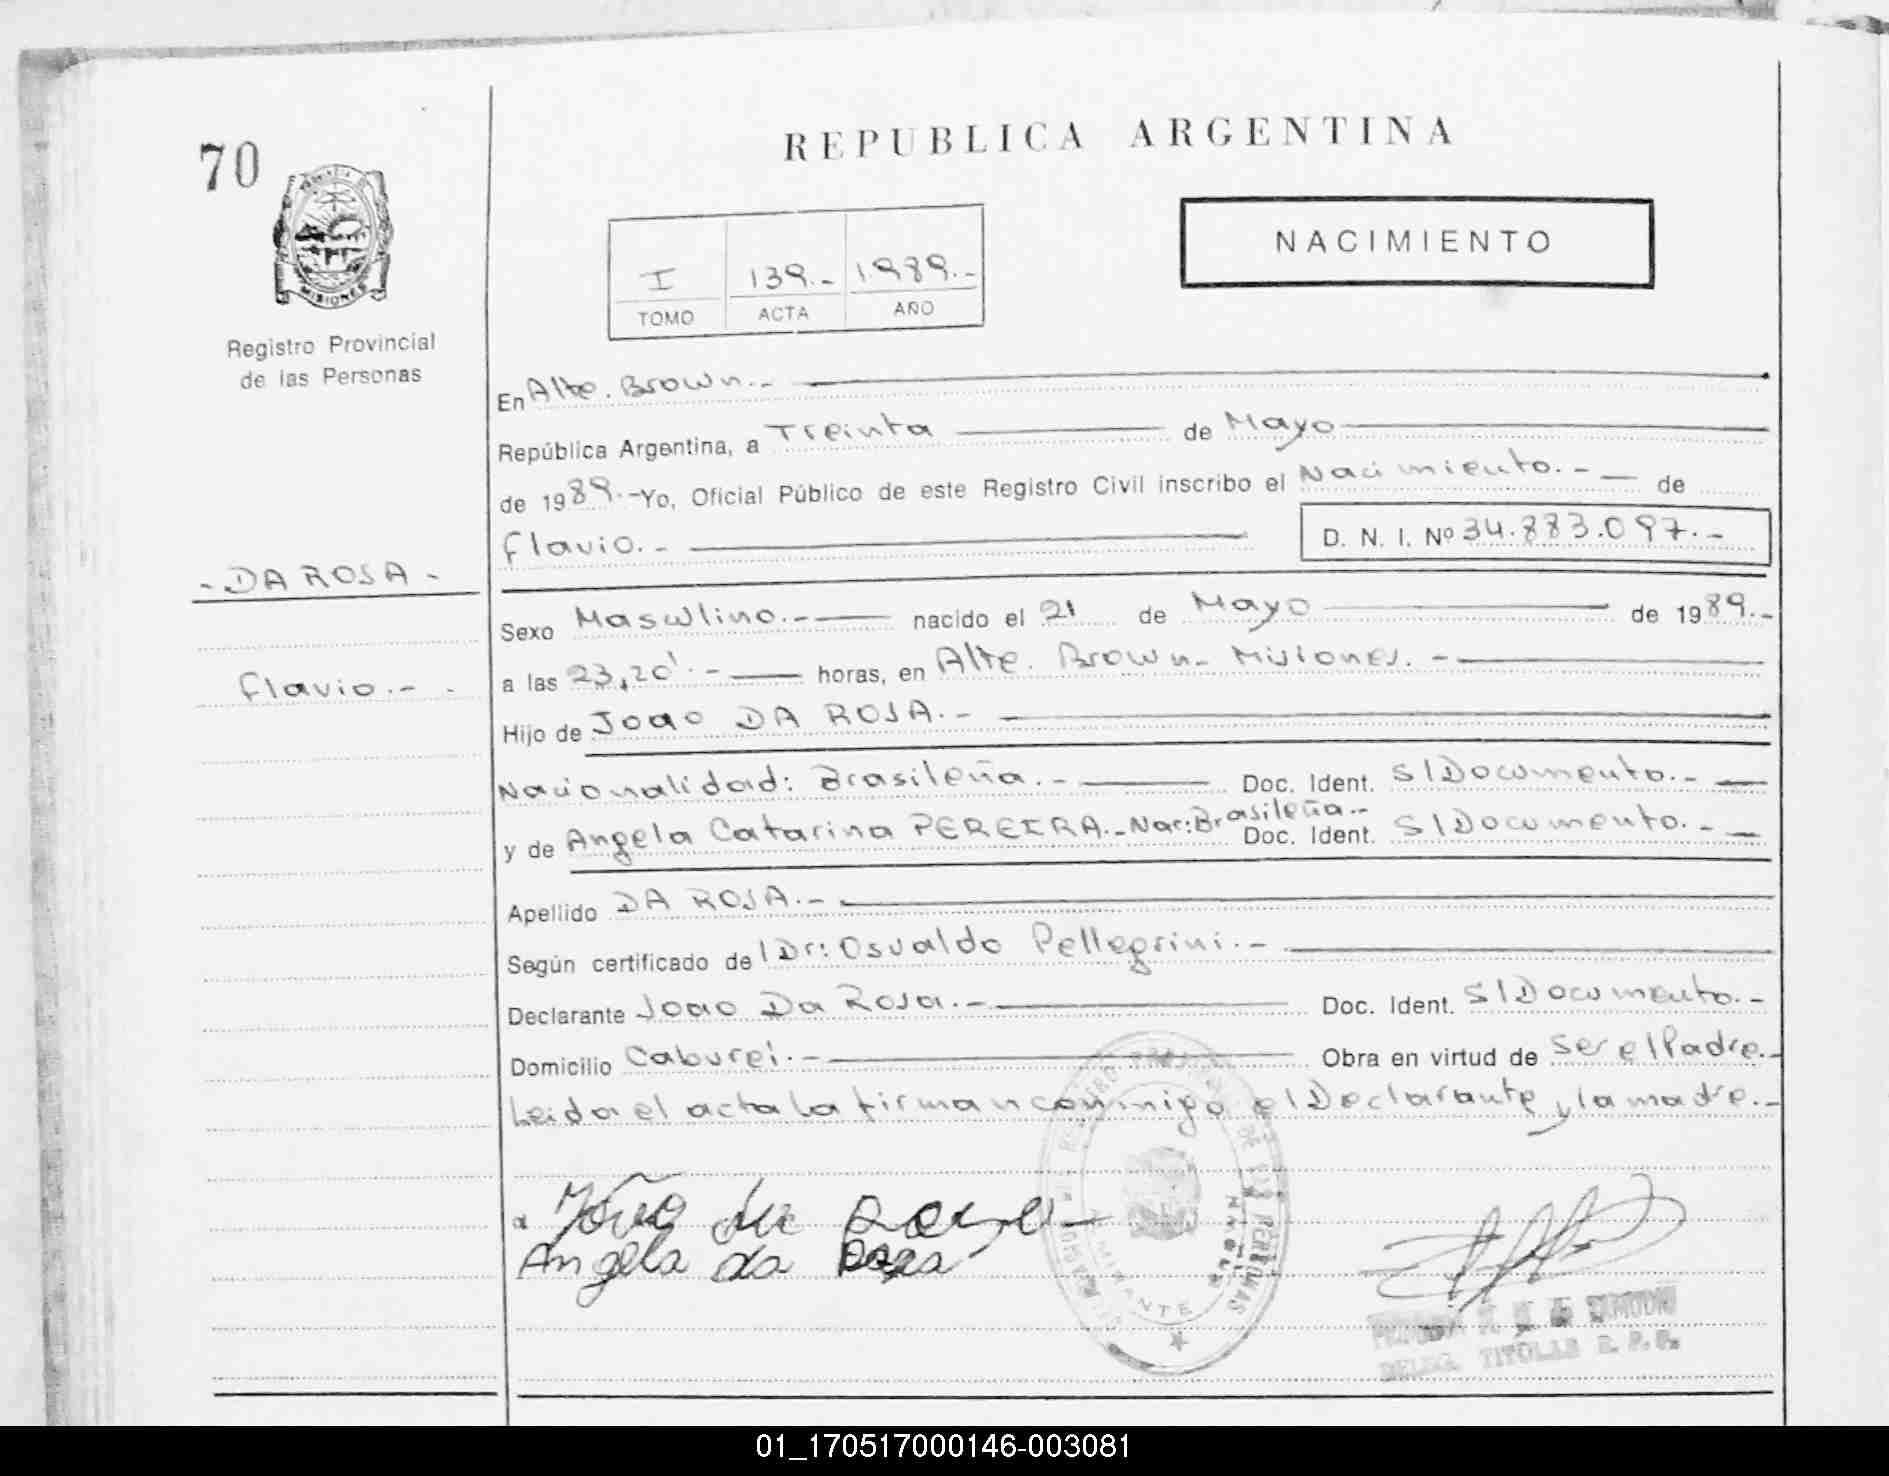 70
REPUBLICA ARGENTINA
MISIONES
Registro Provincial
de las Personas
NACIMIENTO
I 139.- 1.989.-
TOMO ACTA AÑO
En Alte. Brown.-
República Argentina, a Treinta de Mayo
de 1989.- Yo, Oficial Público de este Registro Civil inscribo el Nacimiento.- de
Flavio.- D. N. I. Nº 34.883.097.-
- DA ROSA -
Sexo Masculino.- nacido el 21 de Mayo de 1989.-
Flavio.-
a las 23,20'.- horas, en Alte. Brown- Misiones.-
Hijo de Joao DA ROSA.-
Nacionalidad: Brasileña.- Doc. Ident. S/Documento.-
y de Angela Catarina PEREIRA.- Nac: Brasileña.- Doc. Ident. S/Documento.-
Apellido DA ROSA.-
Según certificado de / Dr: Osvaldo Pellegrini.-
Declarante Joao Da Rosa.- Doc. Ident. S/Documento.-
Domicilio Caburei.- Obra en virtud de Ser el Padre.-
Leida el acta la firman conmigo el Declarante y la madre.-
Angela da Rosa
DELEG. TITULAR R. P. P.
01_170517000146-003081